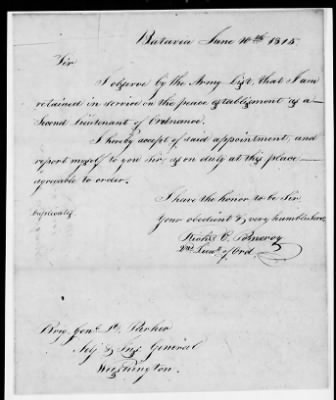 Batavia June 10th 1815
Sir
I observe by the Army List, that I am
retained in service on the peace establishment as a
Second Lieutenant of Ordnance.
I hereby accept of said appointment, and
report myself to you Sir, as on duty at this place
agreeable to order.
I have the honor to be Sir
Your obedient & very humble Serv
Duplicate
C. Pomeroy
2nd Lieut of Ord.
Brig. Genl. D. Parker
Adj & Ins General
Washington.